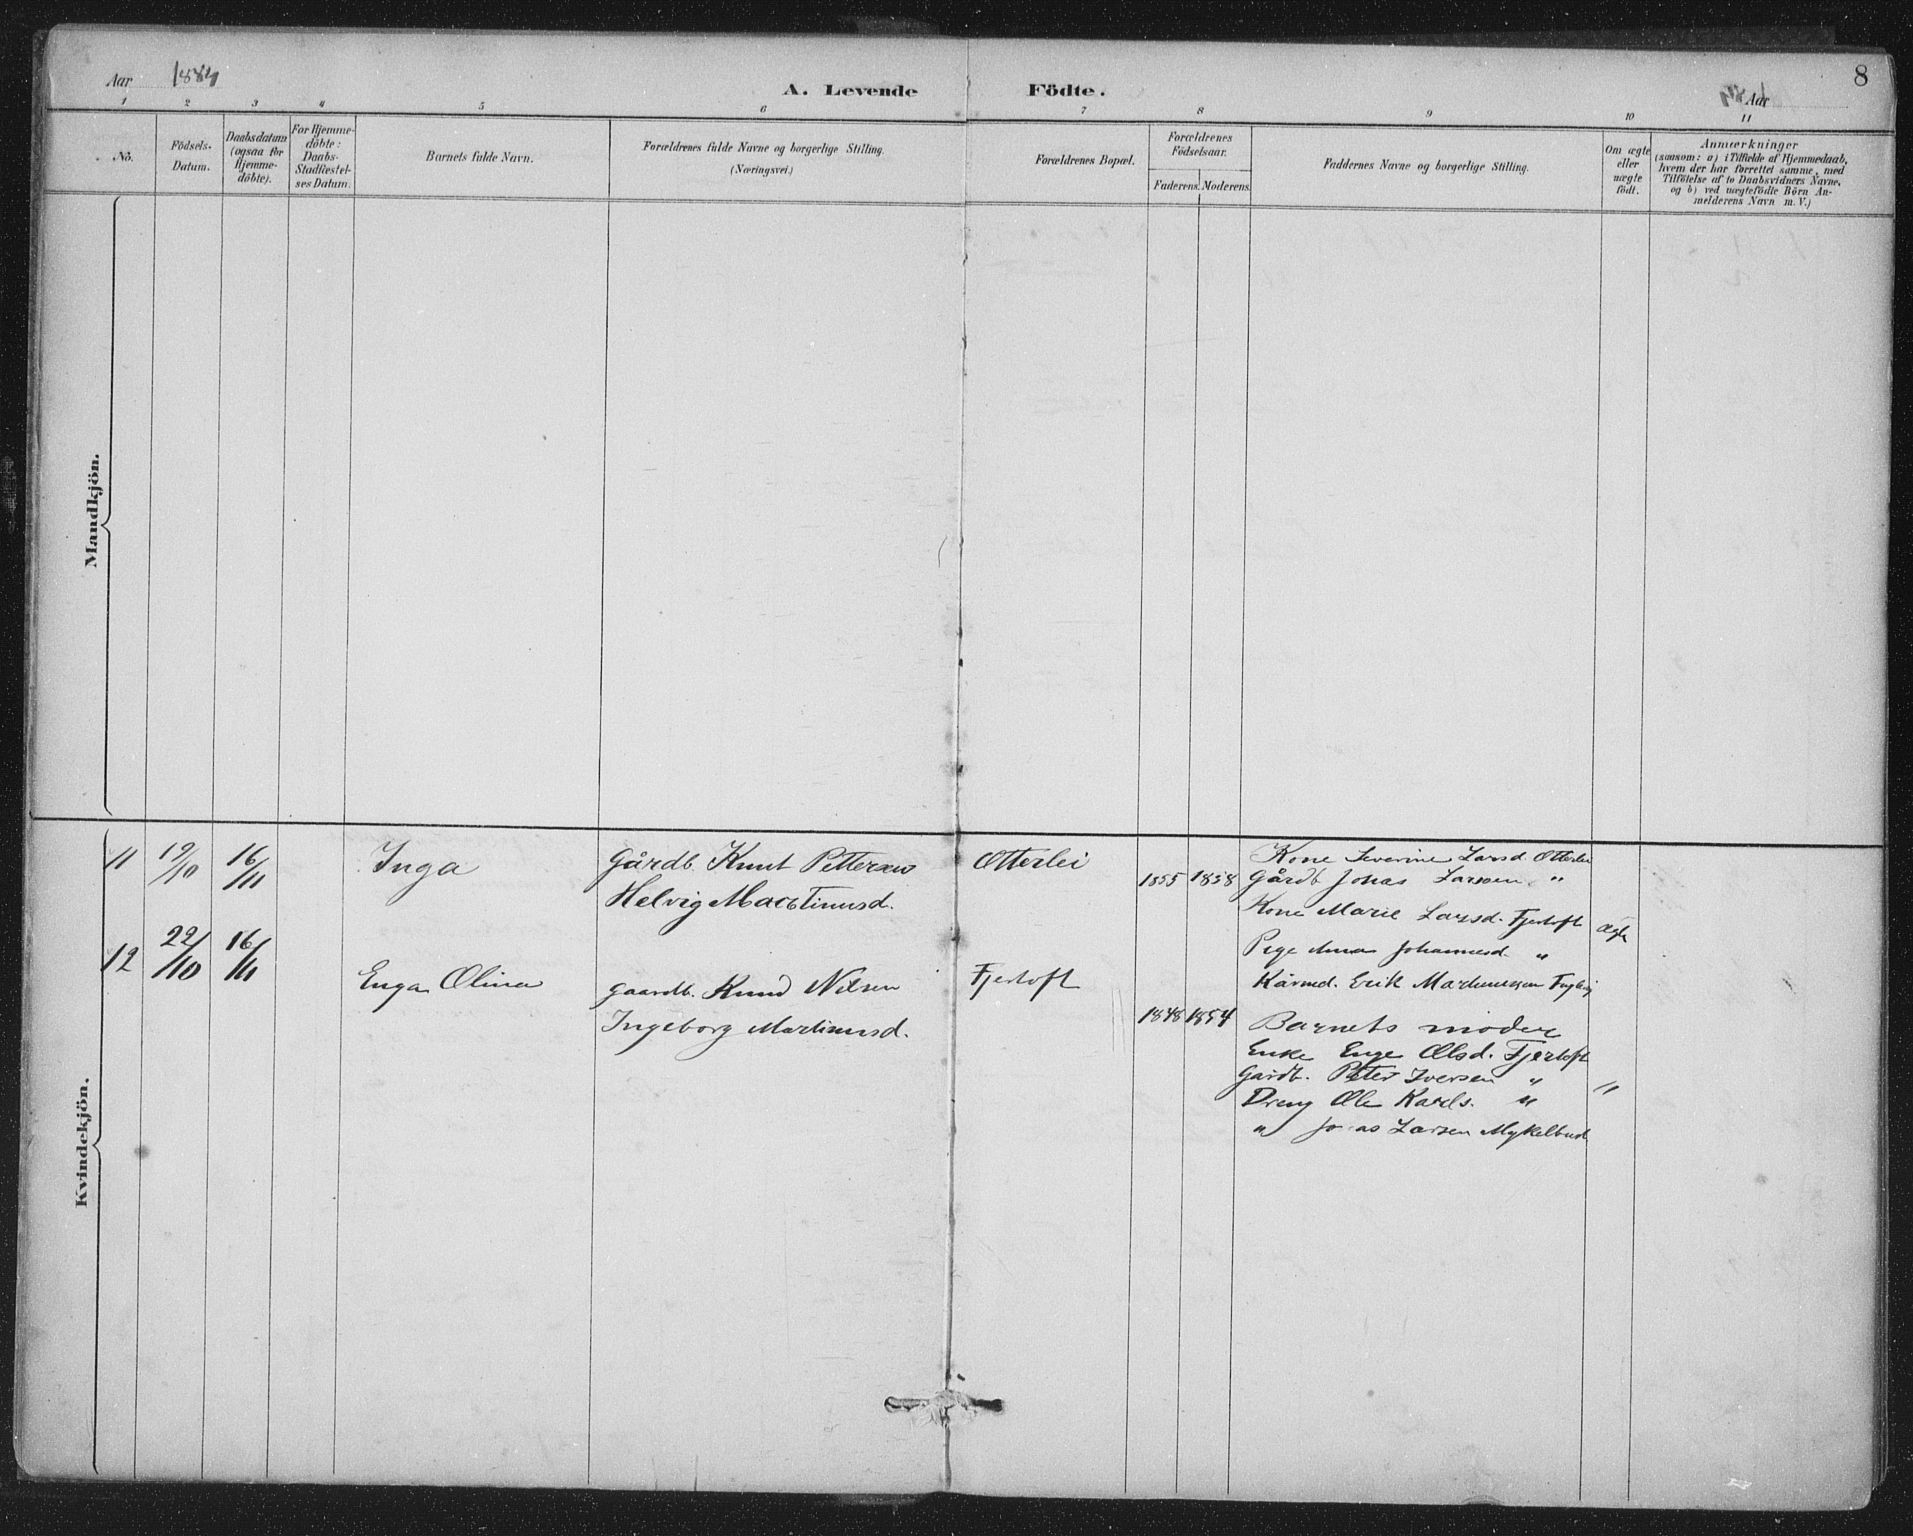 Aar 1884
A. Levende Födte.
Aar
8
1 2 3 4 5 6 7 8 9 10 11
No.
Födsels-
Datum.
Daabsdatum
(ogsaa for
Hjemme-
döbte).
For Hjemme-
döbte:
Daabs-
Stadfæstel-
ses Datum.
Barnets fulde Navn.
Forældrenes fulde Navne og borgerlige Stilling.
(Næringsvei.)
Forældrenes Bopæl.
Forældrenes
Födselsaar.
Faderens. Moderens.
Faddernes Navne og borgerlige Stilling.
Om ægte
eller
uægte
födt.
Anmærkninger
(saasom: a) i Tilfælde af Hjemmedaab,
hvem der har forrettet samme, med
Tilföielse af to Daabsvidners Navne,
og b) ved uægtefödte Börn An-
melderens Navn m. V.)
Mandkjön.
Kvindekjön.
11 19/10 16/11 Inga
Gårdb. Knut Pettersen
Helvig Martinusd.
Otterlei
1855 1858
Kone Severine Larsd Otterlei
Gårdb Johas Larsen "
Kone Marie Larsd. Fjertoft
Pige Anna Johannesd "
Kårmd. Erik Martinussen
Ægte
12 22/10 16/11 Enga Olina
gaardb. Knud Nilsen
Ingeborg Martinusd.
Fjertoft
1848 1854
Barnets moder
Enke Enge Olsd. Fjertoft
Gardb. Peter Iversen "
Dreng Ole Karls. "
" Jonas Larsen Myklebust
"